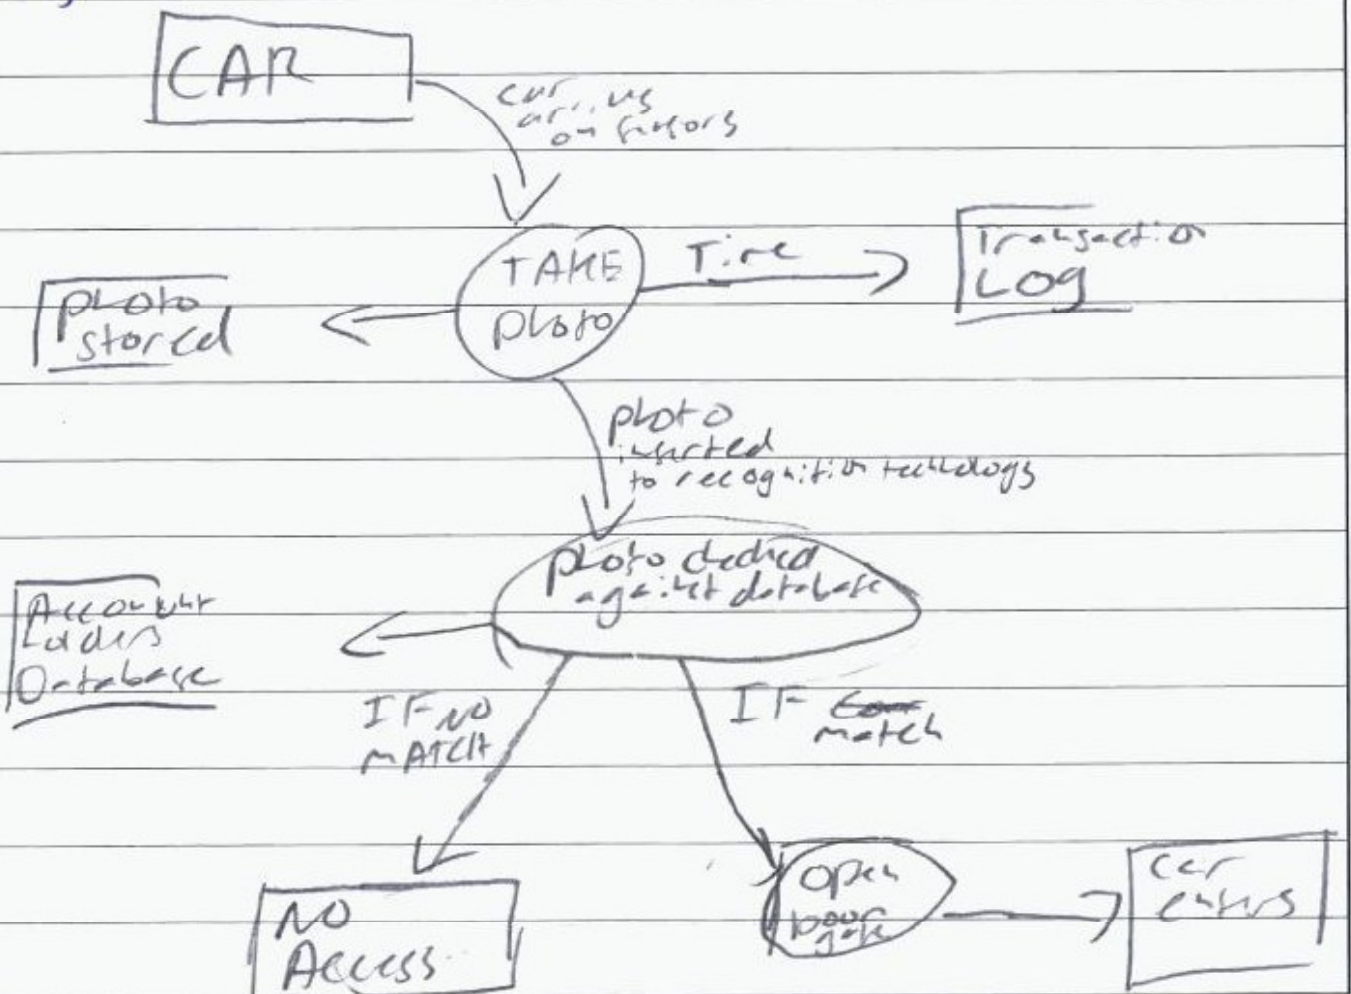 CAR
car
arrives
on sensors
TAKE
photo
Time
Transaction
LOG
photo
stored
photo
inserted
to recognition technology
photo checked
against database
Account
Holders
Database
IF NO
MATCH
IF
match
NO
Access
open
gate
car
enters